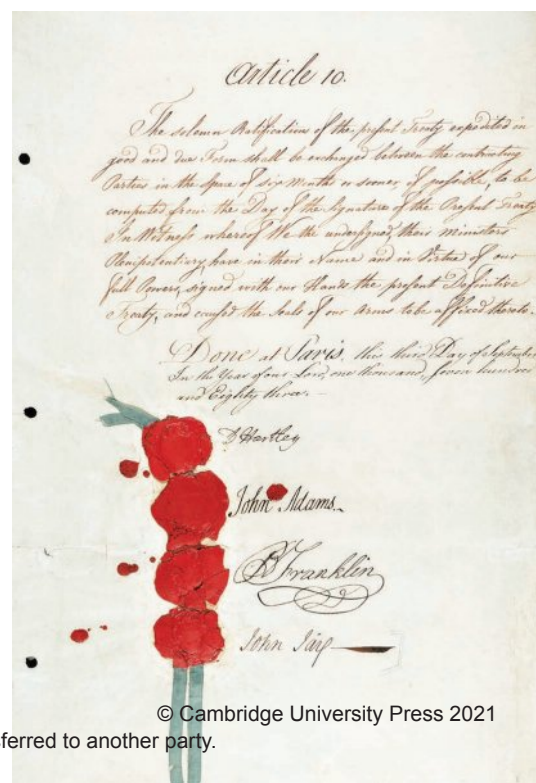 Article 10.
The solemn Ratification of the present Treaty expedited in
good and due Form shall be exchanged between the contracting
Parties in the Space of Six Months or sooner, if possible, to be
computed from the Day of the Signature of the Present Treaty
In Witness whereof We the undersigned their Ministers
Plenipotentiary have in their Name and in Virtue of our
full Powers, signed with our Hands the present Definitive
Treaty, and caused the Seals of our Arms to be affixed thereto.
Done at Paris, this third Day of September
In the Year of our Lord, one thousand, seven hundred
and Eighty three.
D Hartley
John Adams
B Franklin
John Jay
© Cambridge University Press 2021
sferred to another party.